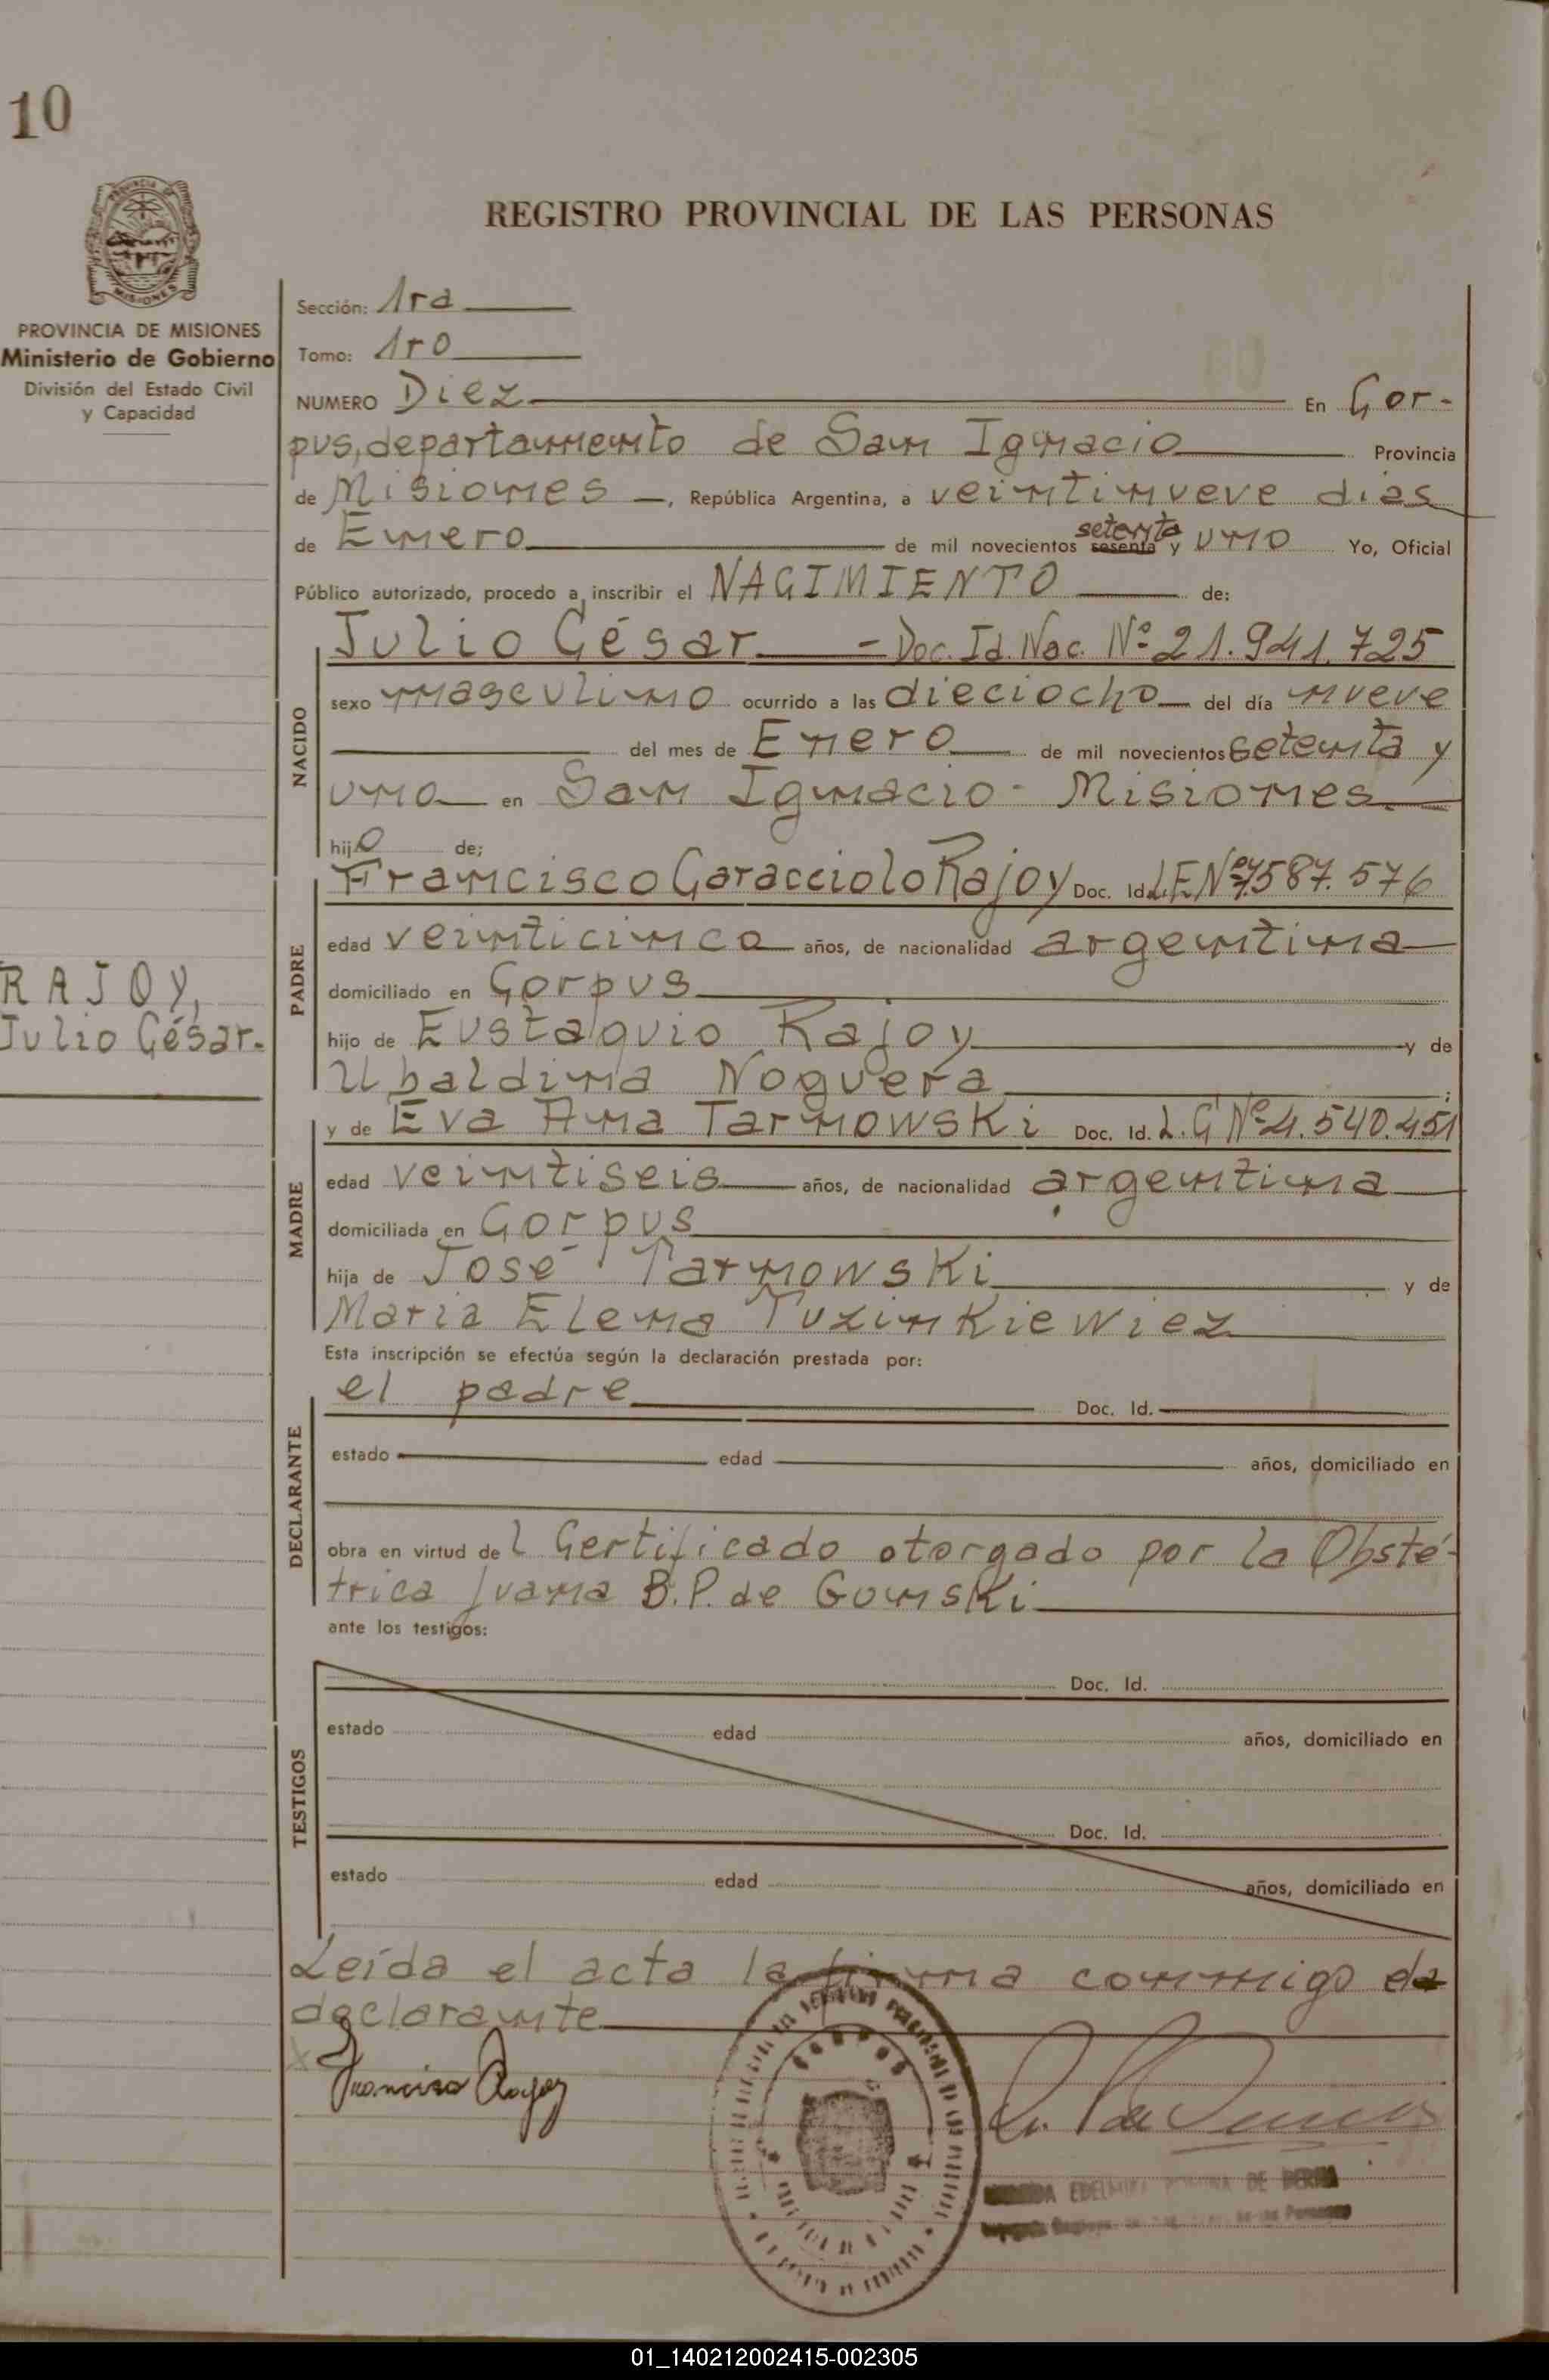 10
REGISTRO PROVINCIAL DE LAS PERSONAS
PROVINCIA DE MISIONES
Ministerio de Gobierno
División del Estado Civil
y Capacidad
Sección: 1ra
Tomo: 1ro
NUMERO Diez En Cor-
pus, departamento de San Ignacio Provincia
de Misiones, República Argentina, a veintinueve dias
de Enero de mil novecientos sesenta setenta y uno Yo, Oficial
Público autorizado, procedo a inscribir el NACIMIENTO de:
Julio César - Doc. Id. Nac. Nº 21.941.725
NACIDO
sexo masculino ocurrido a las dieciocho del día nueve
del mes de Enero de mil novecientos setenta y
uno en San Ignacio - Misiones.
hijo de:
Francisco Caracciolo Rajoy Doc. Id. L.E Nº 7.587.576
PADRE
edad veinticinco años, de nacionalidad argentina
domiciliado en Corpus
RAJOY,
Julio César.
hijo de Eustaquio Rajoy y de
Ubaldina Noguera
y de Eva Ana Tarnowski Doc. Id. L.C Nº 4.540.451
MADRE
edad veintiseis años, de nacionalidad argentina
domiciliada en Corpus
hija de José Tarnowski y de
Maria Elena Tuzinkiewiez
Esta inscripción se efectúa según la declaración prestada por:
el padre Doc. Id.
DECLARANTE
estado edad años, domiciliado en
obra en virtud del Certificado otorgado por la Obsté-
trica Juana B. P. de Gounski
ante los testigos:
TESTIGOS
Doc. Id.
estado edad años, domiciliado en
Doc. Id.
estado edad años, domiciliado en
Leída el acta la firma conmigo el
declarante
Francisco Rajoy
DE
01_140212002415-002305